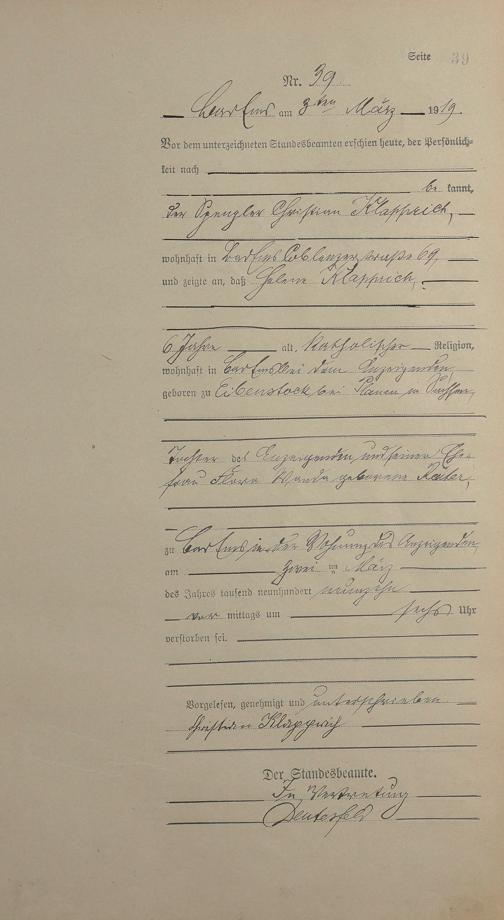 Seite 39
Nr. 39
Bad Ems am 3ten März 1919.
Vor dem unterzeichneten Standesbeamten erschien heute, der Persönlich-
keit nach
be kannt,
der Spengler Christian Klapprich,
wohnhaft in Bad Ems Coblenzerstraße 69,
und zeigte an, daß Helene Klapprich,
6 Jahre alt, katholischer Religion,
wohnhaft in Bad Ems bei dem Anzeigenden
geboren zu Eibenstock bei Plauen in Sachsen,
Tochter des Anzeigenden und seiner Ehe-
frau Flora Wanda geborene
zu Bad Ems in der Wohnung des Anzeigenden,
am zwei ten März
des Jahres tausend neunhundert neunzehn
vor mittags um sechs Uhr
verstorben sei.
Vorgelesen, genehmigt und unterschrieben
Christian Klapprich
Der Standesbeamte.
In Vertretung